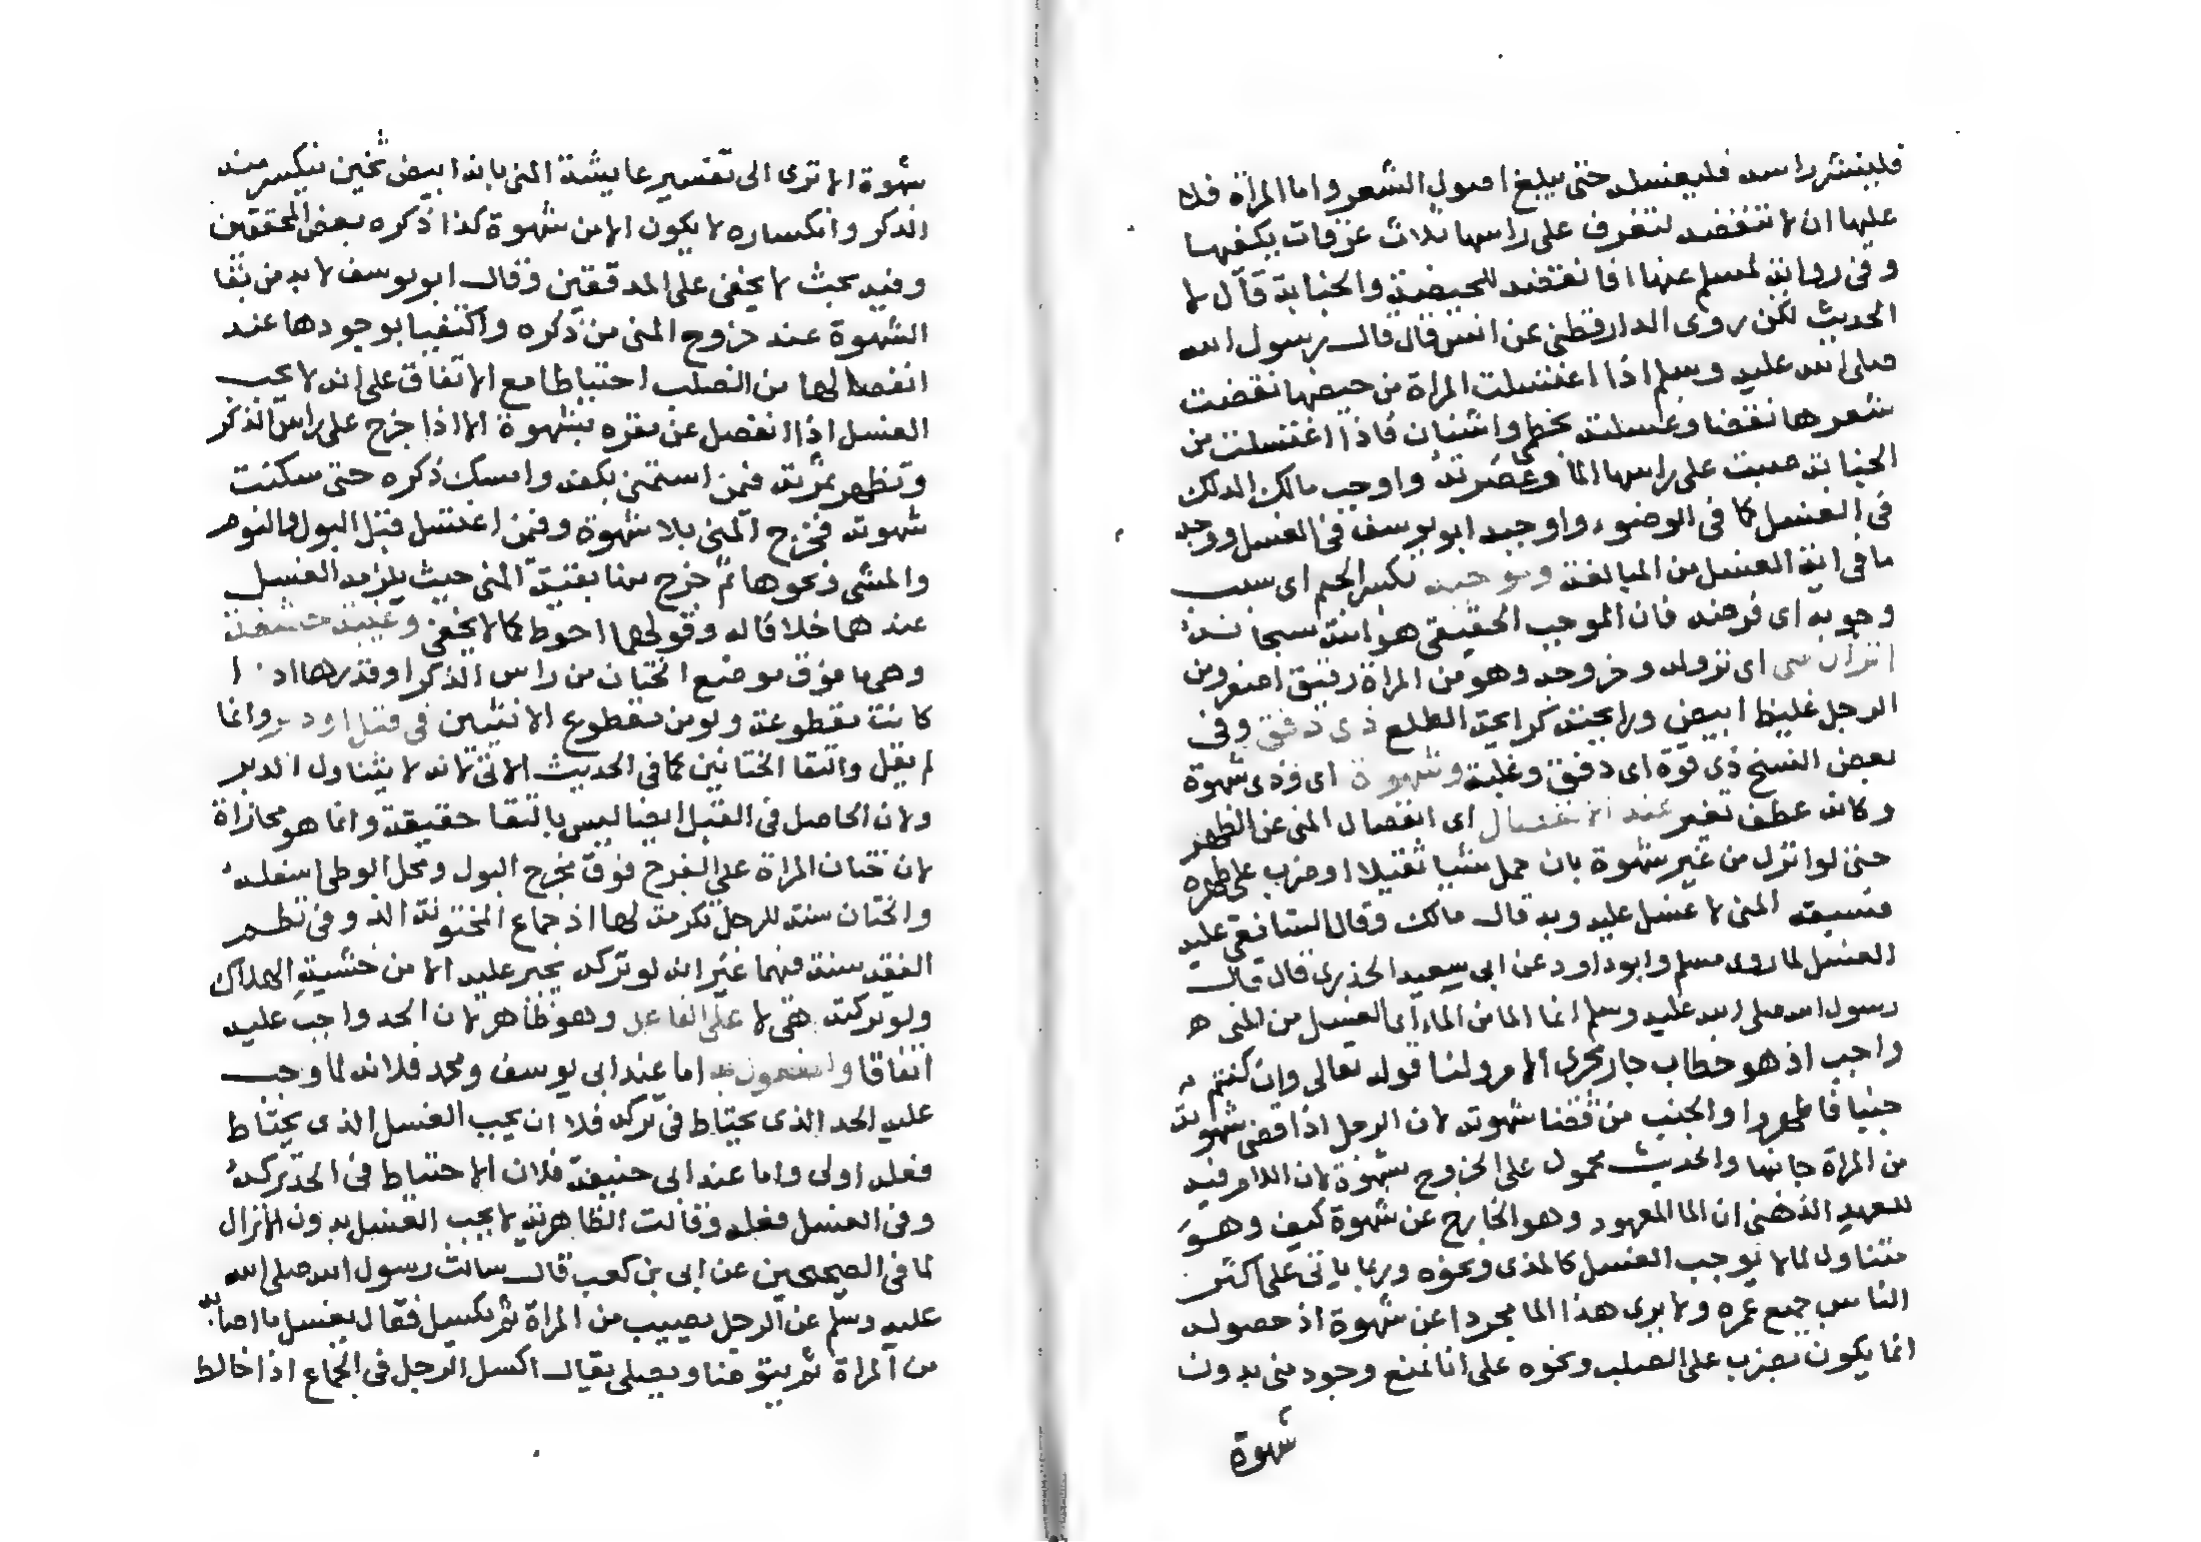 فلينشر راسه فليغسله حتى يبلغ اصول الشعر واما المراة فلا
عليها ان لا تنقضه لتغرف على راسها ثلاث غرفات بكفيها
وفي رواية لمسلم عنها افانقضه للحيضة والجنابة قال لا
الحديث لكن روى الدارقطني عن انس قال قال رسول الله
صلى الله عليه وسلم اذا اغتسلت المراة من حيضها نقضت
شعرها نقضا وغسلته بخطمي واشنان فاذا اغتسلت من
الجنابة صبت على راسها الما وعصرته واوجب مالك الدلك
في الغسل كما في الوضوء واوجبه ابو يوسف في الغسل ووجد
ما في اية الغسل من المبالغة وموجبه بكسر الجيم اى سبب
وجوبه اى فرضه فان الموجب الحقيقي هو الله سبحانه
انزال مني اى نزوله وخروجه وهو من المراة رقيق اصفر ومن
الرجل غليظ ابيض ورايحته كرايحة الطلع ذى دفق وفي
بعض النسخ ذى قوة اى دفق وغلبة وشهوة اى وذى شهوة
وكانه عطف تفسير عند الانفصال اى انفصال المني عن الظهر
حتى لو انزل من غير شهوة بان حمل شيا ثقيلا او ضرب على ظهره
فسبقه المني لا غسل عليه وبه قال مالك وقال الشافعي عليه
الغسل لما روى مسلم وابو داود عن ابي سعيد الخدرى قال قال
رسول الله صلى الله عليه وسلم انما الما من الماء اى الغسل من المني
واجب اذ هو خطاب جار مجرى الامر ولنا قوله تعالى وان كنتم
جنبا فاطهروا والجنب من قضا شهوته لان الرجل اذا قضى شهوته
من المراة جانبها والحديث محمول على الخروج بشهوة لان اللام فيه
للعهد الذهني ان الما المعهود وهو الخارج عن شهوة كيف وهو
متناول لما لا يوجب الغسل كالمذى ونحوه وربما ياتى على اكثر
الناس جميع عمره ولا يرى هذا الما مجردا عن شهوة اذ حصوله
انما يكون بضرب على الصلب ونحوه على انا نمنع وجود مني بدون
شهوة
شهوة الا ترى الى تفسير عايشة المني بانه ابيض ثخين ينكسر منه
الذكر وانكساره لا يكون الا من شهوة كذا ذكره بعض المحققين
وفيه بحث لا يخفى على المدققين وقال ابو يوسف لا بد من بقا
الشهوة عند خروج المني من ذكره واكتفيا بوجودها عند
انفصالها من الصلب احتياطا مع الاتفاق على انه لا يجب
الغسل اذا انفصل عن مقره بشهوة الا اذا خرج على راس الذكر
وتظهر ثمرته فيمن استمنى بكفه وامسك ذكره حتى سكنت
شهوته فخرج المني بلا شهوة وفيمن اغتسل قبل البول والنوم
والمشي ونحوها ثم خرج منا بقية المني حيث يلزمه الغسل
عندهما خلافا له وقولهما احوط كما لا يخفى وغيبة حشفة
وهي ما فوق موضع الختان من راس الذكر او قدرها اذا
كانت مقطوعة ولو من مقطوع الانثيين في قبل او دبر وانما
لم يقل والتقا الختانين كما في الحديث الاتى لانه لا يتناول الدبر
ولان الحاصل في القبل ايضا ليس بالتقا حقيقة وانما هو محازاة
لان ختان المراة على الفرج فوق مخرج البول ومحل الوطى اسفله
والختان سنة للرجل تكرمة لها اذ جماع المختونة الذ وفي نظم
الفقه سنة فيهما غير انه لو تركه يجبر عليه الا من خشية الهلاك
ولو تركته هى لا على الفاعل وهو ظاهر لان الحد واجب عليه
اتفاقا والمفعول به اما عند ابي يوسف ومحمد فلانه لما وجب
عليه الحد الذى يحتاط في تركه فلان يجب الغسل الذى يحتاط
فعله اولى واما عند ابي حنيفة فلان الاحتياط في الحد تركه
وفي الغسل فعله وقالت الظاهرية لا يجب الغسل بدون الانزال
لما في الصحيحين عن ابي بن كعب قال سالت رسول الله صلى الله
عليه وسلم عن الرجل يصيب من المراة ثم يكسل فقال يغسل ما اصابه
من المراة ثم يتوضا ويصلى يقال اكسل الرجل في الجماع اذا خالط